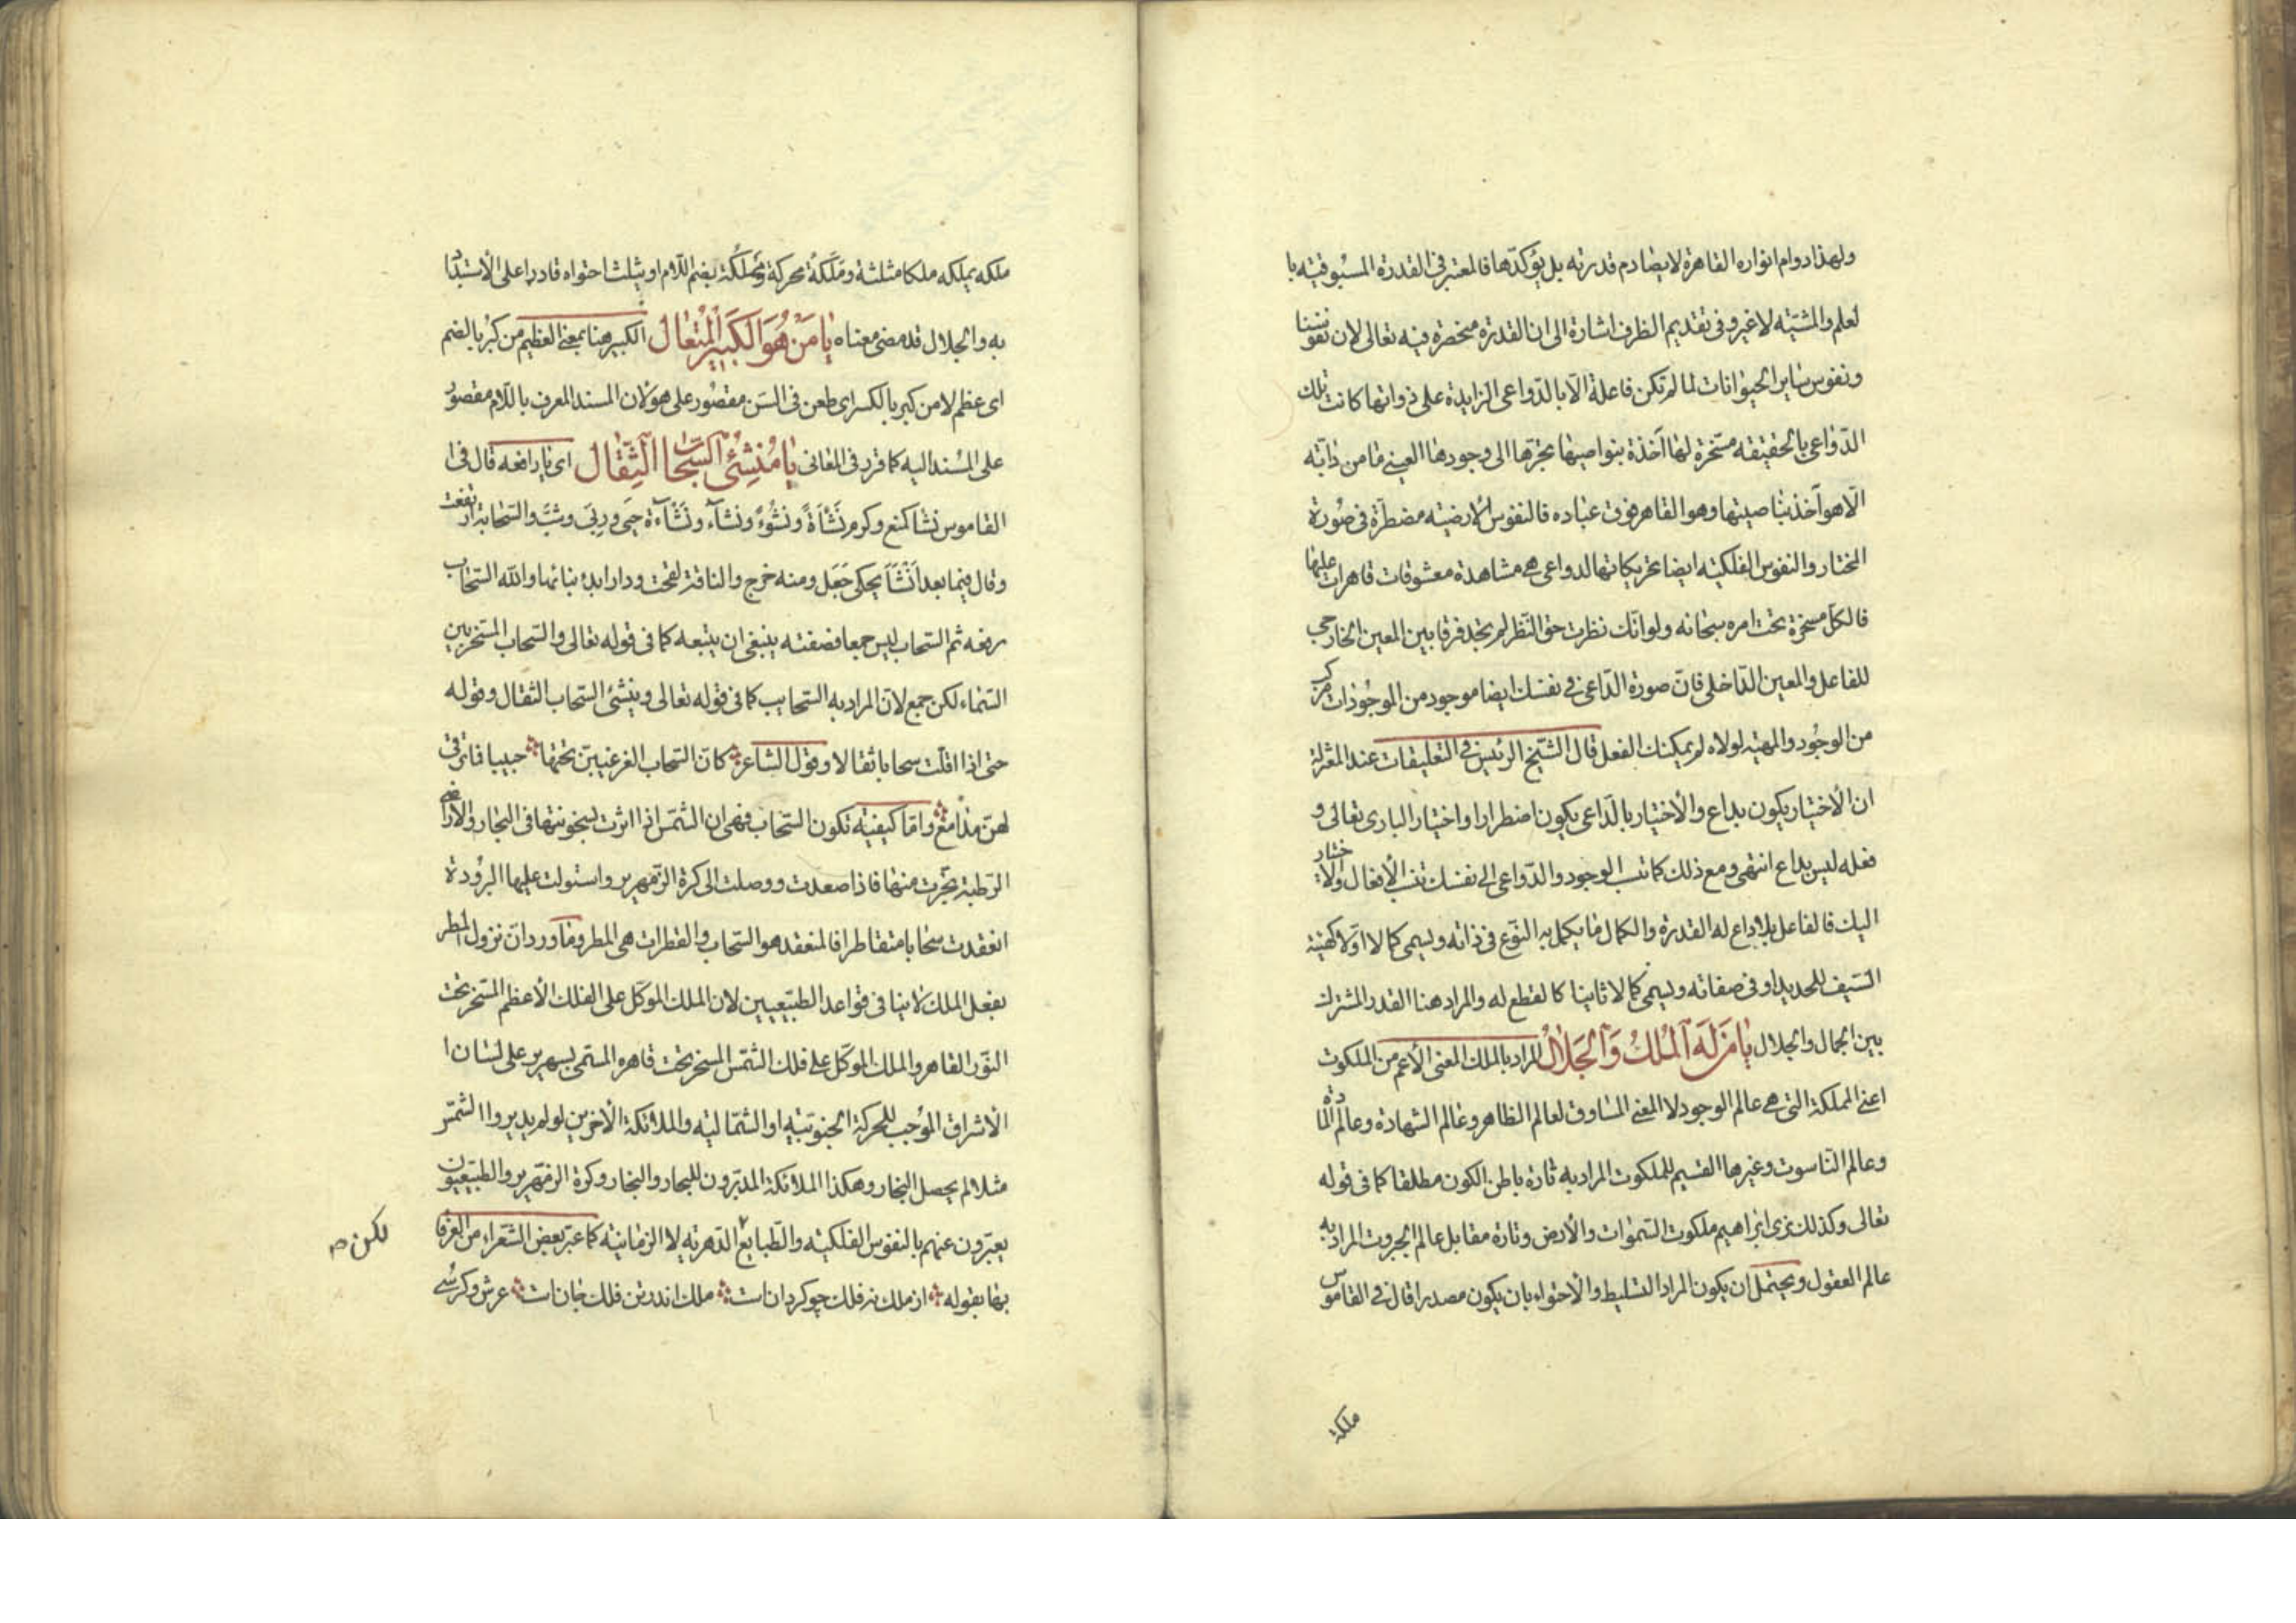 ولهذا دوام انواره القاهرة لا يصادم قدرته بل يؤكدها فالمعتبر فی القدرة المسبوقيته با
لعلم والمشيّه لا غير وفی تقديم الظرف اشارة الی ان القدرة منحصرة فيه تعالی لان نفوسنا
ونفوس ساير الحيوانات لما لم تكن فاعلة الّا بالدّواعی الزايدة علی ذواتها كانت تلك
الدّواعی بالحقيقه مسّخرة لها آخذة بنواصيها تجرّها الی وجودها العينے ما من دآبّه
الّا هو آخذ بناصيتها وهو القاهر فوق عباده فالنفوس الأرضيّه مضطرّة فی صُورة
المختار والنفوس الفلكيّه ايضا تحريكاتها لدواعی هے مشاهدة معشوقات قاهرات عليها
فالكلّ مسخرة تحت امره سبحانه ولو انّك نظرت حق النّظر لم تجد فرقا بين المعين الخارجی
للفاعل والمعين الدّاخلی فانّ صورة الدّاعی فی نفسك ايضا موجود من الموجُودات مركب
من الوجُود والمهيّه لولاه لم يمكنك الفعل قال الشّيخ الرئيس فے التعليقات عند المعتزلة
ان الأختيار يكون بداع والأختيار بالدّاعی يكون اضطرارا واختيار الباری تعالی و
فعله ليس بداع انتهی ومع ذلك كما تنسب الوجود والدّواعی الی نفسك تنسب الأفعال والأختيار
اليك فالفاعل بلا داع له القدرة والكمال ما يكمل به النّوع فی ذاته ويسمی كمالا اوّلا كهيئة
السّيف للحديد او فی صفاته ويسمی كمالا ثانيا كالقطع له والمراد هنا القدر المشترك
بين الجمال والجلال يَا مَنْ لَهُ الْمُلْكُ وَالْجَلَالُ المراد بالملك المعنی الأعم من الملكوت
اعنے المملكة التی هے عالم الوجود لا المعنے المساوق لعالم الظاهر وعالم الشهادة وعالم المادّة
وعالم النّاسوت وغيرها القسيم للملكوت المراد به تارة باطن الكون مطلقا كما فی قوله
تعالی وكذلك نری ابراهيم ملكوت السّموات والأرض وتارة مقابل عالم الجبروت المراد به
عالم العقول ويحتمل ان يكون المراد التسليط والأحتواء بان يكون مصدرا قال فے القاموس
ملكه
ملكه يملكه ملكا مثلثة ومَلَكَةً محركة ومَملُكة بضم اللّام او يثلث احتواه قادرا علی الأستبداد
به والجلال قد مضی معناه يَا مَنْ هُوَ الْكَبِيرُ الْمُتَعَالُ الكبير هنا بمعنے العظيم من كبُر بالضم
ای عظم لا من كبِر بالكسر ای طعن فی السّن مقصُور علی هو لأن المسند المعرف باللّام مقصُور
علی المُسند اليه كما قرر فی المعانی يَا مُنْشِئَ السَّحَابِ الثِّقَالِ ای يا رافعه قال فی ا
القاموس نشا كمنع وكرم نَشْأَةً ونشُوءً ونشآء ونَشآءة حيی وربی وشبّ والسّحابة ارتفعت
وقال فيما بعد اَنْشَأَ يحكی جَعَل ومنه خرج والناقة لقحت ودارا بدأ بنائها والله السّحاب
رفعه ثم السّحاب ليس جمعا فصفته ينبغی ان يتبعه كما فی قوله تعالی والسّحاب المسّخر بين
السّماء لكن جمع لأن المراد به السّحايب كما فی قوله تعالی وينشئ السّحاب الثقال وقوله
حتی اذا اقلّت سحابا ثقالا وقول الشاعر كانّ السّحاب الغر غيبن تحتها حبيبا فما ترقی
لهنّ مدامع وامّا كيفيّه تكون السّحاب فهی ان الشّمس اذا اثرت بسخونتها فی البحار والأراضی
الرّطبة تبخّرت منها فاذا صعدت ووصلت الی كرة الزمهرير واستولت عليها البرُودة
انعقدت سحابا متقاطرا فالمنعقد هو السّحاب والقطرات هی المطر وما ورد انّ نزول المطر
بفعل الملك لا ينافی قواعد الطبيّعيين لان الملك الموكّل علی الفلك الأعظم المسّخر تحت
النّور القاهر والملك الموكّل علے فلك الشّمس المسخر تحت قاهره المسّمی بسهرير علی لسان ا
الأشراق المُوجب للحركة الجنوبّية او الشّمالية والملائكة الأخرين لو لم يديروا الشمّس
مثلا لم يحصل البخار وهكذا الملائكة المدبّرون للبحار والبخار وكرة الزمهرير والطبيّعيّون
يعبّرون عنهم بالنفوس الفلكيّه والطّبايع الدّهريّه لا الزمانيّة كما عبّر بعض الشّعراء من العرفا
لكن ص
بها بقوله از ملك نه فلك چو گردان است ملك اندر تن فلك جان است عرش وكرسے